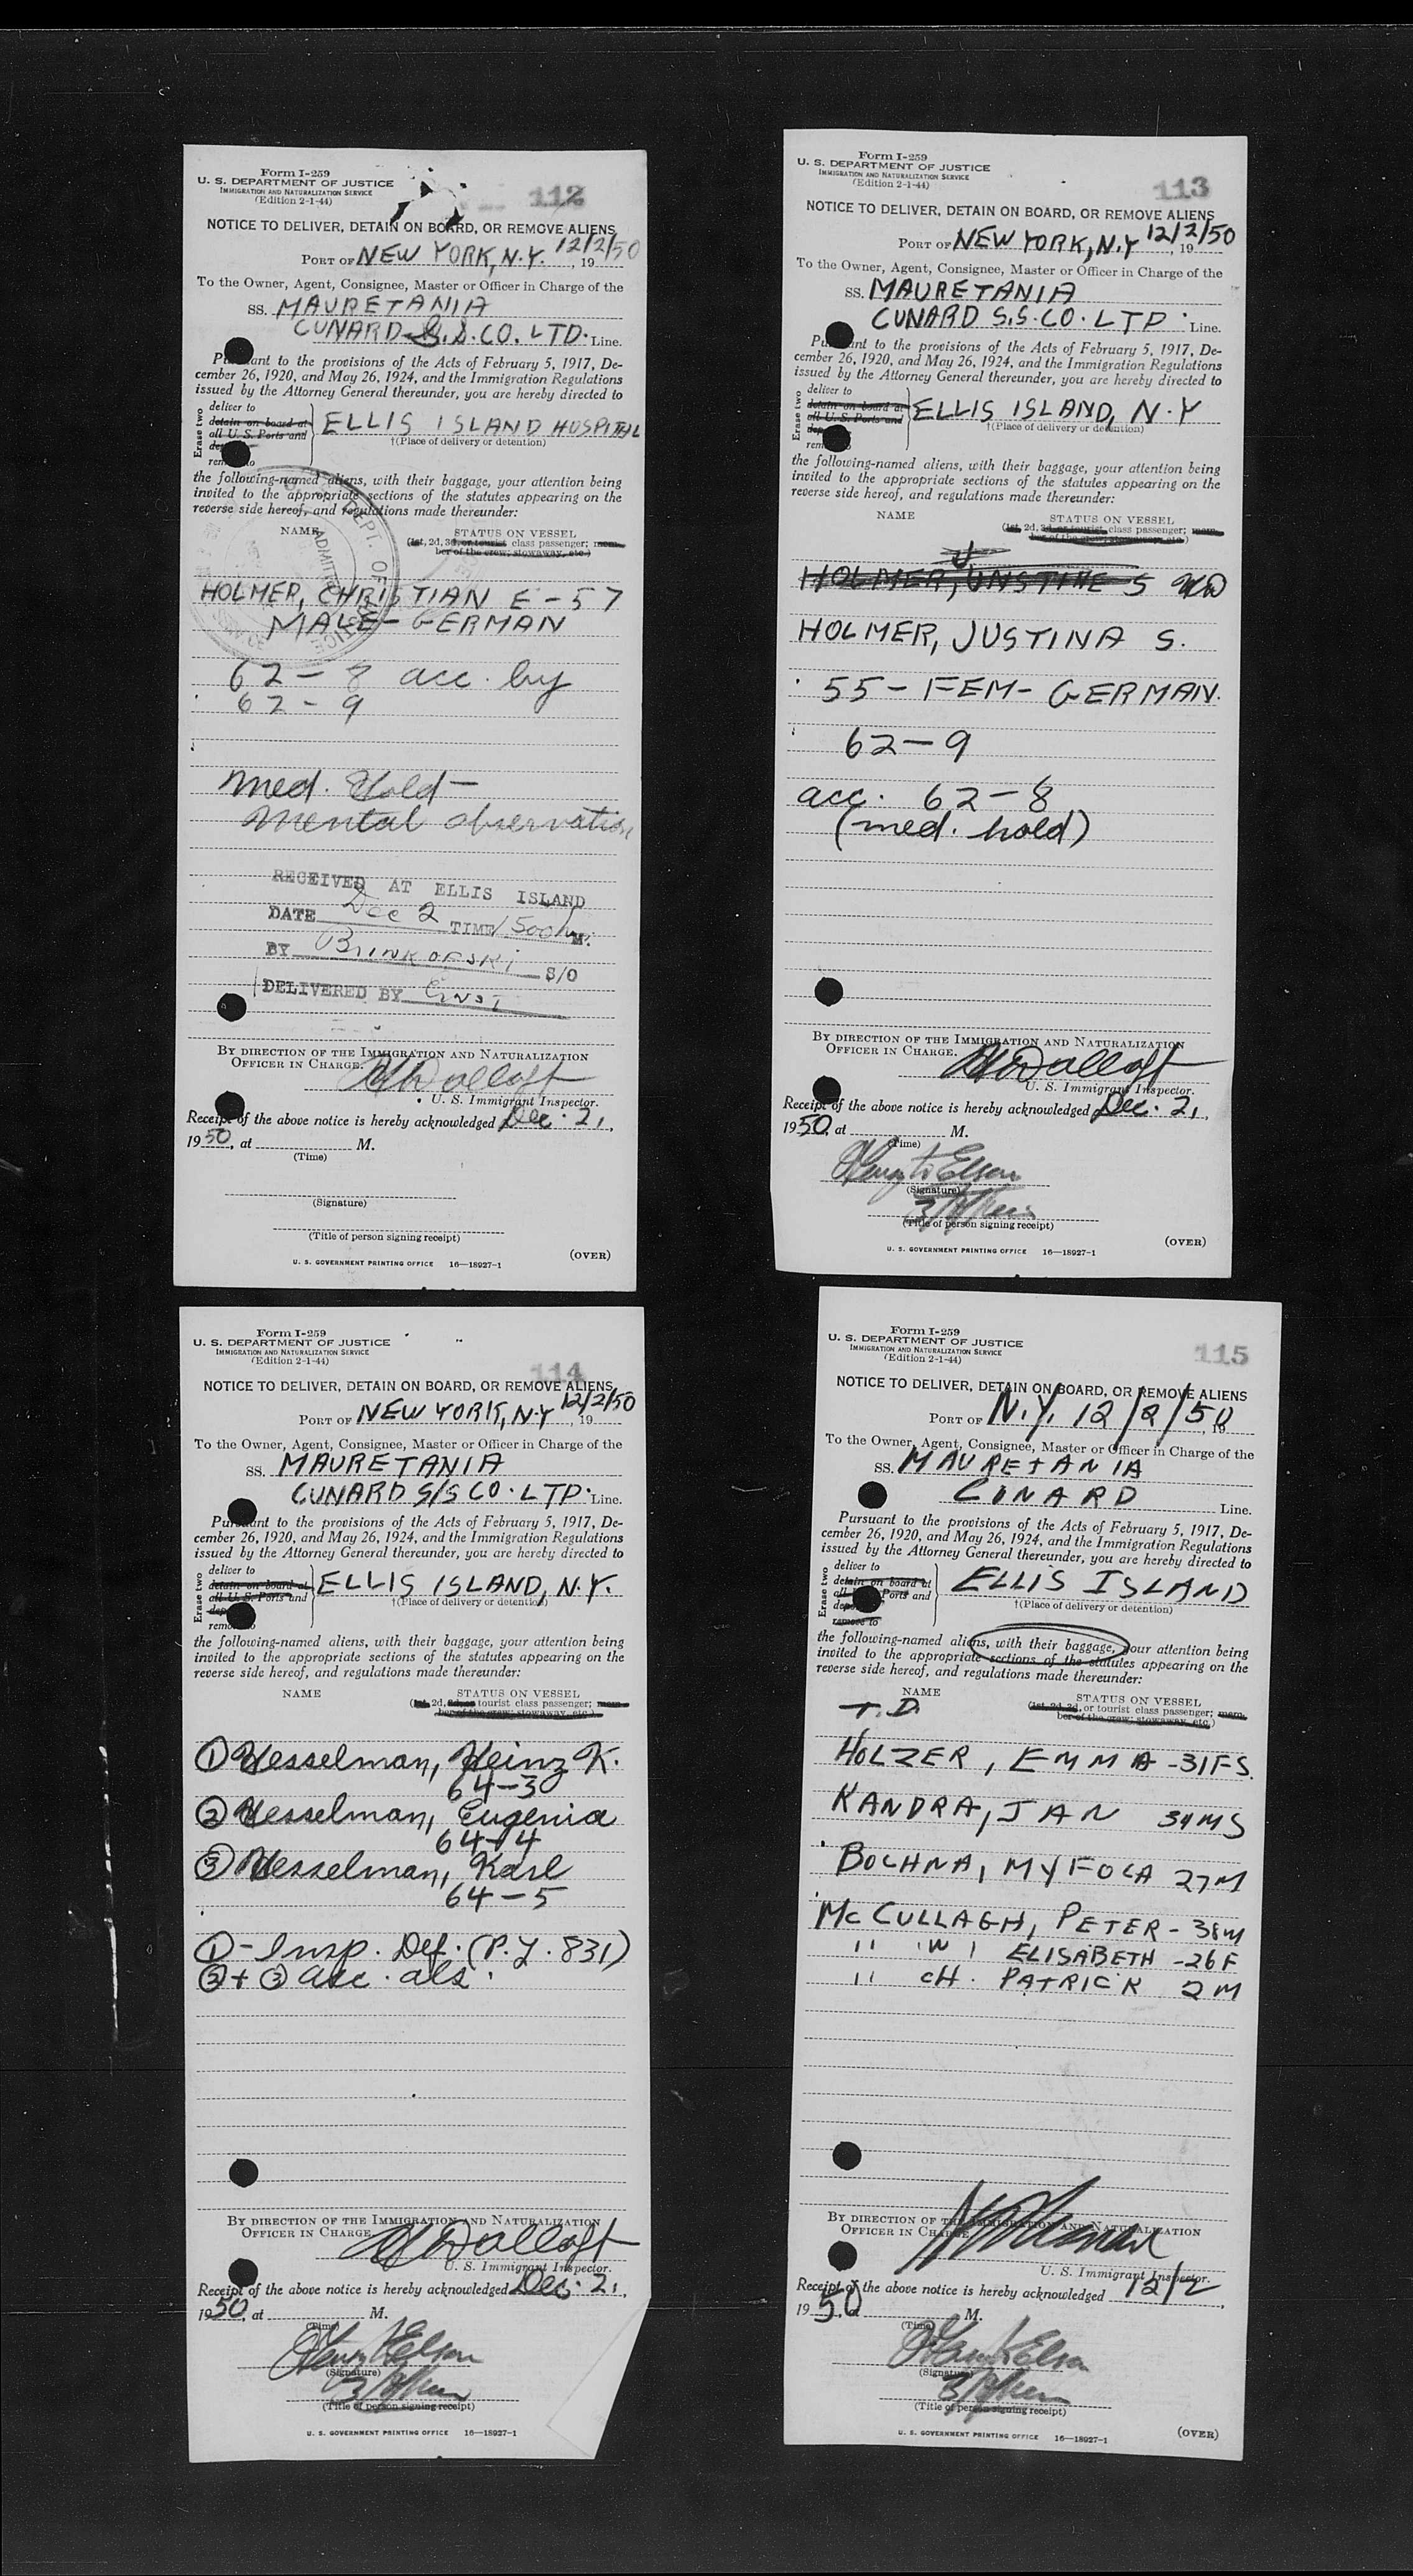 Form I-259
U. S. DEPARTMENT OF JUSTICE
IMMIGRATION AND NATURALIZATION SERVICE
(Edition 2-1-44)
112
NOTICE TO DELIVER, DETAIN ON BOARD, OR REMOVE ALIENS
PORT OF NEW YORK, N.Y. 12/2/50, 19
To the Owner, Agent, Consignee, Master or Officer in Charge of the
SS. MAURETANIA
CUNARD S.S. CO. LTD. Line.
Pursuant to the provisions of the Acts of February 5, 1917, De-
cember 26, 1920, and May 26, 1924, and the Immigration Regulations
issued by the Attorney General thereunder, you are hereby directed to
Erase two
deliver to
detain on board at
all U. S. Ports and
remove to
ELLIS ISLAND HOSPITAL
†(Place of delivery or detention)
the following-named aliens, with their baggage, your attention being
invited to the appropriate sections of the statutes appearing on the
reverse side hereof, and regulations made thereunder:
NAME STATUS ON VESSEL
(1st, 2d, 3d, or tourist class passenger; mem-
ber of the crew; stowaway, etc.)
HOLMER, CHRISTIAN E - 57
MALE - GERMAN
62 - 8 acc. by
62 - 9
Med. Hold -
Mental observation
RECEIVED AT ELLIS ISLAND
DATE Dec 2 TIME 1500 M.
BY Brinkofski S/O
DELIVERED BY Ernst
BY DIRECTION OF THE IMMIGRATION AND NATURALIZATION
OFFICER IN CHARGE.
U. S. Immigrant Inspector.
Receipt of the above notice is hereby acknowledged Dec. 2,
1950, at M.
(Time)
(Signature)
(Title of person signing receipt)
(OVER)
U. S. GOVERNMENT PRINTING OFFICE 16—18927-1
Form I-259
U. S. DEPARTMENT OF JUSTICE
IMMIGRATION AND NATURALIZATION SERVICE
(Edition 2-1-44)
113
NOTICE TO DELIVER, DETAIN ON BOARD, OR REMOVE ALIENS
PORT OF NEW YORK, N.Y 12/2/50, 19
To the Owner, Agent, Consignee, Master or Officer in Charge of the
SS. MAURETANIA
CUNARD S.S. CO. LTD. Line.
Pursuant to the provisions of the Acts of February 5, 1917, De-
cember 26, 1920, and May 26, 1924, and the Immigration Regulations
issued by the Attorney General thereunder, you are hereby directed to
Erase two
deliver to
detain on board at
all U. S. Ports and
remove to
ELLIS ISLAND, N.Y
†(Place of delivery or detention)
the following-named aliens, with their baggage, your attention being
invited to the appropriate sections of the statutes appearing on the
reverse side hereof, and regulations made thereunder:
NAME STATUS ON VESSEL
(1st, 2d, 3d, or tourist class passenger; mem-
ber of the crew; stowaway, etc.)
HOLMER,
HOLMER, JUSTINA S.
55 - FEM - GERMAN.
62 - 9
acc. 62 - 8
(med. hold)
BY DIRECTION OF THE IMMIGRATION AND NATURALIZATION
OFFICER IN CHARGE.
U. S. Immigrant Inspector.
Receipt of the above notice is hereby acknowledged Dec. 2,
1950, at M.
(Time)
(Signature)
(Title of person signing receipt)
(OVER)
U. S. GOVERNMENT PRINTING OFFICE 16—18927-1
Form I-259
U. S. DEPARTMENT OF JUSTICE
IMMIGRATION AND NATURALIZATION SERVICE
(Edition 2-1-44)
114
NOTICE TO DELIVER, DETAIN ON BOARD, OR REMOVE ALIENS
PORT OF NEW YORK, N.Y 12/2/50, 19
To the Owner, Agent, Consignee, Master or Officer in Charge of the
SS. MAURETANIA
CUNARD S/S CO. LTD. Line.
Pursuant to the provisions of the Acts of February 5, 1917, De-
cember 26, 1920, and May 26, 1924, and the Immigration Regulations
issued by the Attorney General thereunder, you are hereby directed to
Erase two
deliver to
detain on board at
all U. S. Ports and
remove to
ELLIS ISLAND, N.Y.
†(Place of delivery or detention)
the following-named aliens, with their baggage, your attention being
invited to the appropriate sections of the statutes appearing on the
reverse side hereof, and regulations made thereunder:
NAME STATUS ON VESSEL
(1st, 2d, 3d, or tourist class passenger; mem-
ber of the crew; stowaway, etc.)
① Hesselman, Heinz K.
64-3
② Hesselman, Eugenia
64-4
③ Hesselman, Karl
64-5
① - Insp. Def. (P.L. 831)
② + ③ acc. als.
BY DIRECTION OF THE IMMIGRATION AND NATURALIZATION
OFFICER IN CHARGE.
U. S. Immigrant Inspector.
Receipt of the above notice is hereby acknowledged Dec. 2,
1950, at M.
(Time)
(Signature)
(Title of person signing receipt)
U. S. GOVERNMENT PRINTING OFFICE 16—18927-1
Form I-259
U. S. DEPARTMENT OF JUSTICE
IMMIGRATION AND NATURALIZATION SERVICE
(Edition 2-1-44)
115
NOTICE TO DELIVER, DETAIN ON BOARD, OR REMOVE ALIENS
PORT OF N.Y. 12/2/50, 19
To the Owner, Agent, Consignee, Master or Officer in Charge of the
SS. MAURETANIA
CUNARD Line.
Pursuant to the provisions of the Acts of February 5, 1917, De-
cember 26, 1920, and May 26, 1924, and the Immigration Regulations
issued by the Attorney General thereunder, you are hereby directed to
Erase two
deliver to
detain on board at
all U. S. Ports and
remove to
ELLIS ISLAND
†(Place of delivery or detention)
the following-named aliens, with their baggage, your attention being
invited to the appropriate sections of the statutes appearing on the
reverse side hereof, and regulations made thereunder:
NAME STATUS ON VESSEL
(1st, 2d, 3d, or tourist class passenger; mem-
ber of the crew; stowaway, etc.)
T.D.
HOLZER, EMMA -31FS.
KANDRA, JAN 34MS
BOCHNA, MYFOLA 27M
McCULLAGH, PETER - 38M
" W ELISABETH -26F
" CH. PATRICK 2M
BY DIRECTION OF THE IMMIGRATION AND NATURALIZATION
OFFICER IN CHARGE
U. S. Immigrant Inspector.
Receipt of the above notice is hereby acknowledged 12/2,
1950, at M.
(Time)
(Signature)
(Title of person signing receipt)
U. S. GOVERNMENT PRINTING OFFICE 16—18927-1
(OVER)